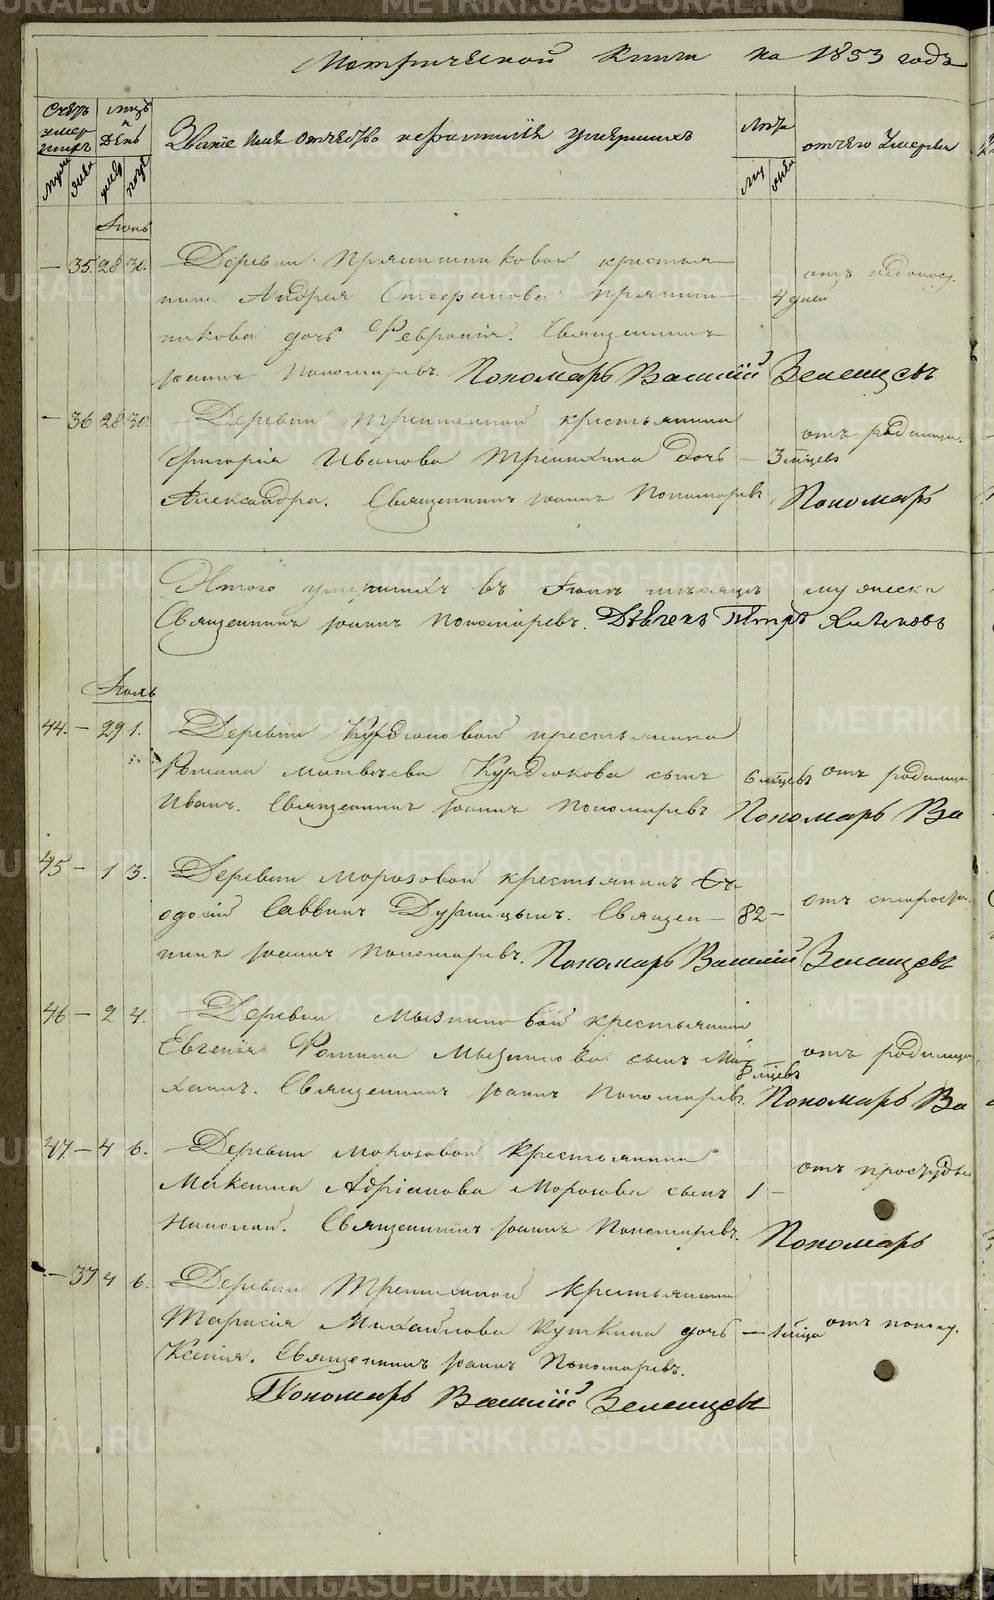 Метрической Книги на 1853 годъ
Счетъ умершихъ
Мѣс. и День
Званіе имя отчество и фамилія умершихъ
Лѣта
отчего умерли
Іюнь
— 35. 28 30. Деревни Прянишниковой крестья-
нина Андрея Стефанова Прянишни- — 4 дней отъ недоносу.
никова дочь Феврония. Священникъ
Іоаннъ Пономаревъ. Пономарь Василій Зеленцевъ
— 36 28 30. Деревни крестьянина отъ родимца.
Григорія Иванова дочь — 3 мѣсцевъ
Александра. Священникъ Іоаннъ Пономаревъ Пономарь
Итого умершихъ въ Іюнѣ мѣсяцѣ муженска
Священникъ Іоаннъ Пономаревъ. Дьячекъ Петръ
Іюль
44. — 29 1. Деревни Курдюковой крестьянина
Романа Матвѣева Курдюкова сынъ 6 мѣсцевъ отъ родимца
Иванъ. Священникъ Іоаннъ Пономаревъ Пономарь Ва
45 — 1 3. Деревни Морозовой крестьянинъ Ѳе-
одосій Саввинъ Священ- 82 — отъ старости.
никъ Іоаннъ Пономаревъ. Пономарь Василій Зеленцевъ
46 — 2 4. Деревни крестьянина
Евгенія Фомина сынъ Ми- 8 мѣсцевъ отъ родимца
хаилъ. Священникъ Іоаннъ Пономаревъ. Пономарь Ва
47 — 4 6. Деревни Морозовой Крестьянина отъ простуды
Максима Адріанова Морозова сынъ 1 —
Николай. Священникъ Іоаннъ Пономаревъ. Пономарь
— 37 4 6. Деревни Крестьянина
Тарасія Михайлова дочь — 1 мѣсца отъ поносу.
Ксенія. Священникъ Іоаннъ Пономаревъ.
Пономарь Василій Зеленцевъ
METRIKI.GASO-URAL.RU